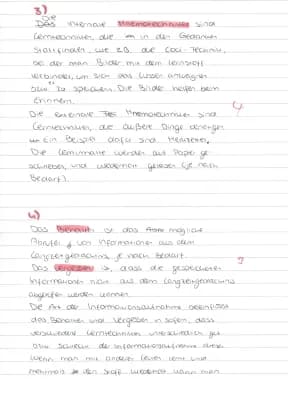 3)
Die
Das interne Mnemotechniken sind
Lerntechniken, die in den Gedanken
stattfinden, wie z.B. die Loci-Technik,
bei der man Bilder mit dem Lernstoff
verbindet, um sich das Wissen
zu speichern. Die Bilder helfen beim
Erinnern.
Die externale Mnemotechniken sind
Lerntechniken, die äußere Dinge
Ein Beispiel dafür sind Merkzettel,
Die Lerninhalte werden auf Papier ge-
schrieben, und wiederholt gelesen (je nach
Bedarf).
4)
Das Behalten ist das mögliche
Abrufen von Informationen aus dem
Langzeitgedächtnis je nach Bedarf.
Das Vergessen ist, dass die gespeicherten
Informationen nicht aus dem Langzeitgedächtnis
abgerufen werden können.
Die Art der Informationsaufnahme beeinflusst
das Behalten und Vergessen in sofern, dass
verschiedene Lerntechniken unterschiedlich gut
der Informationsaufnahme
Wenn man mit anderen lernt und
mehrmals den Stoff wiederholt, kann man